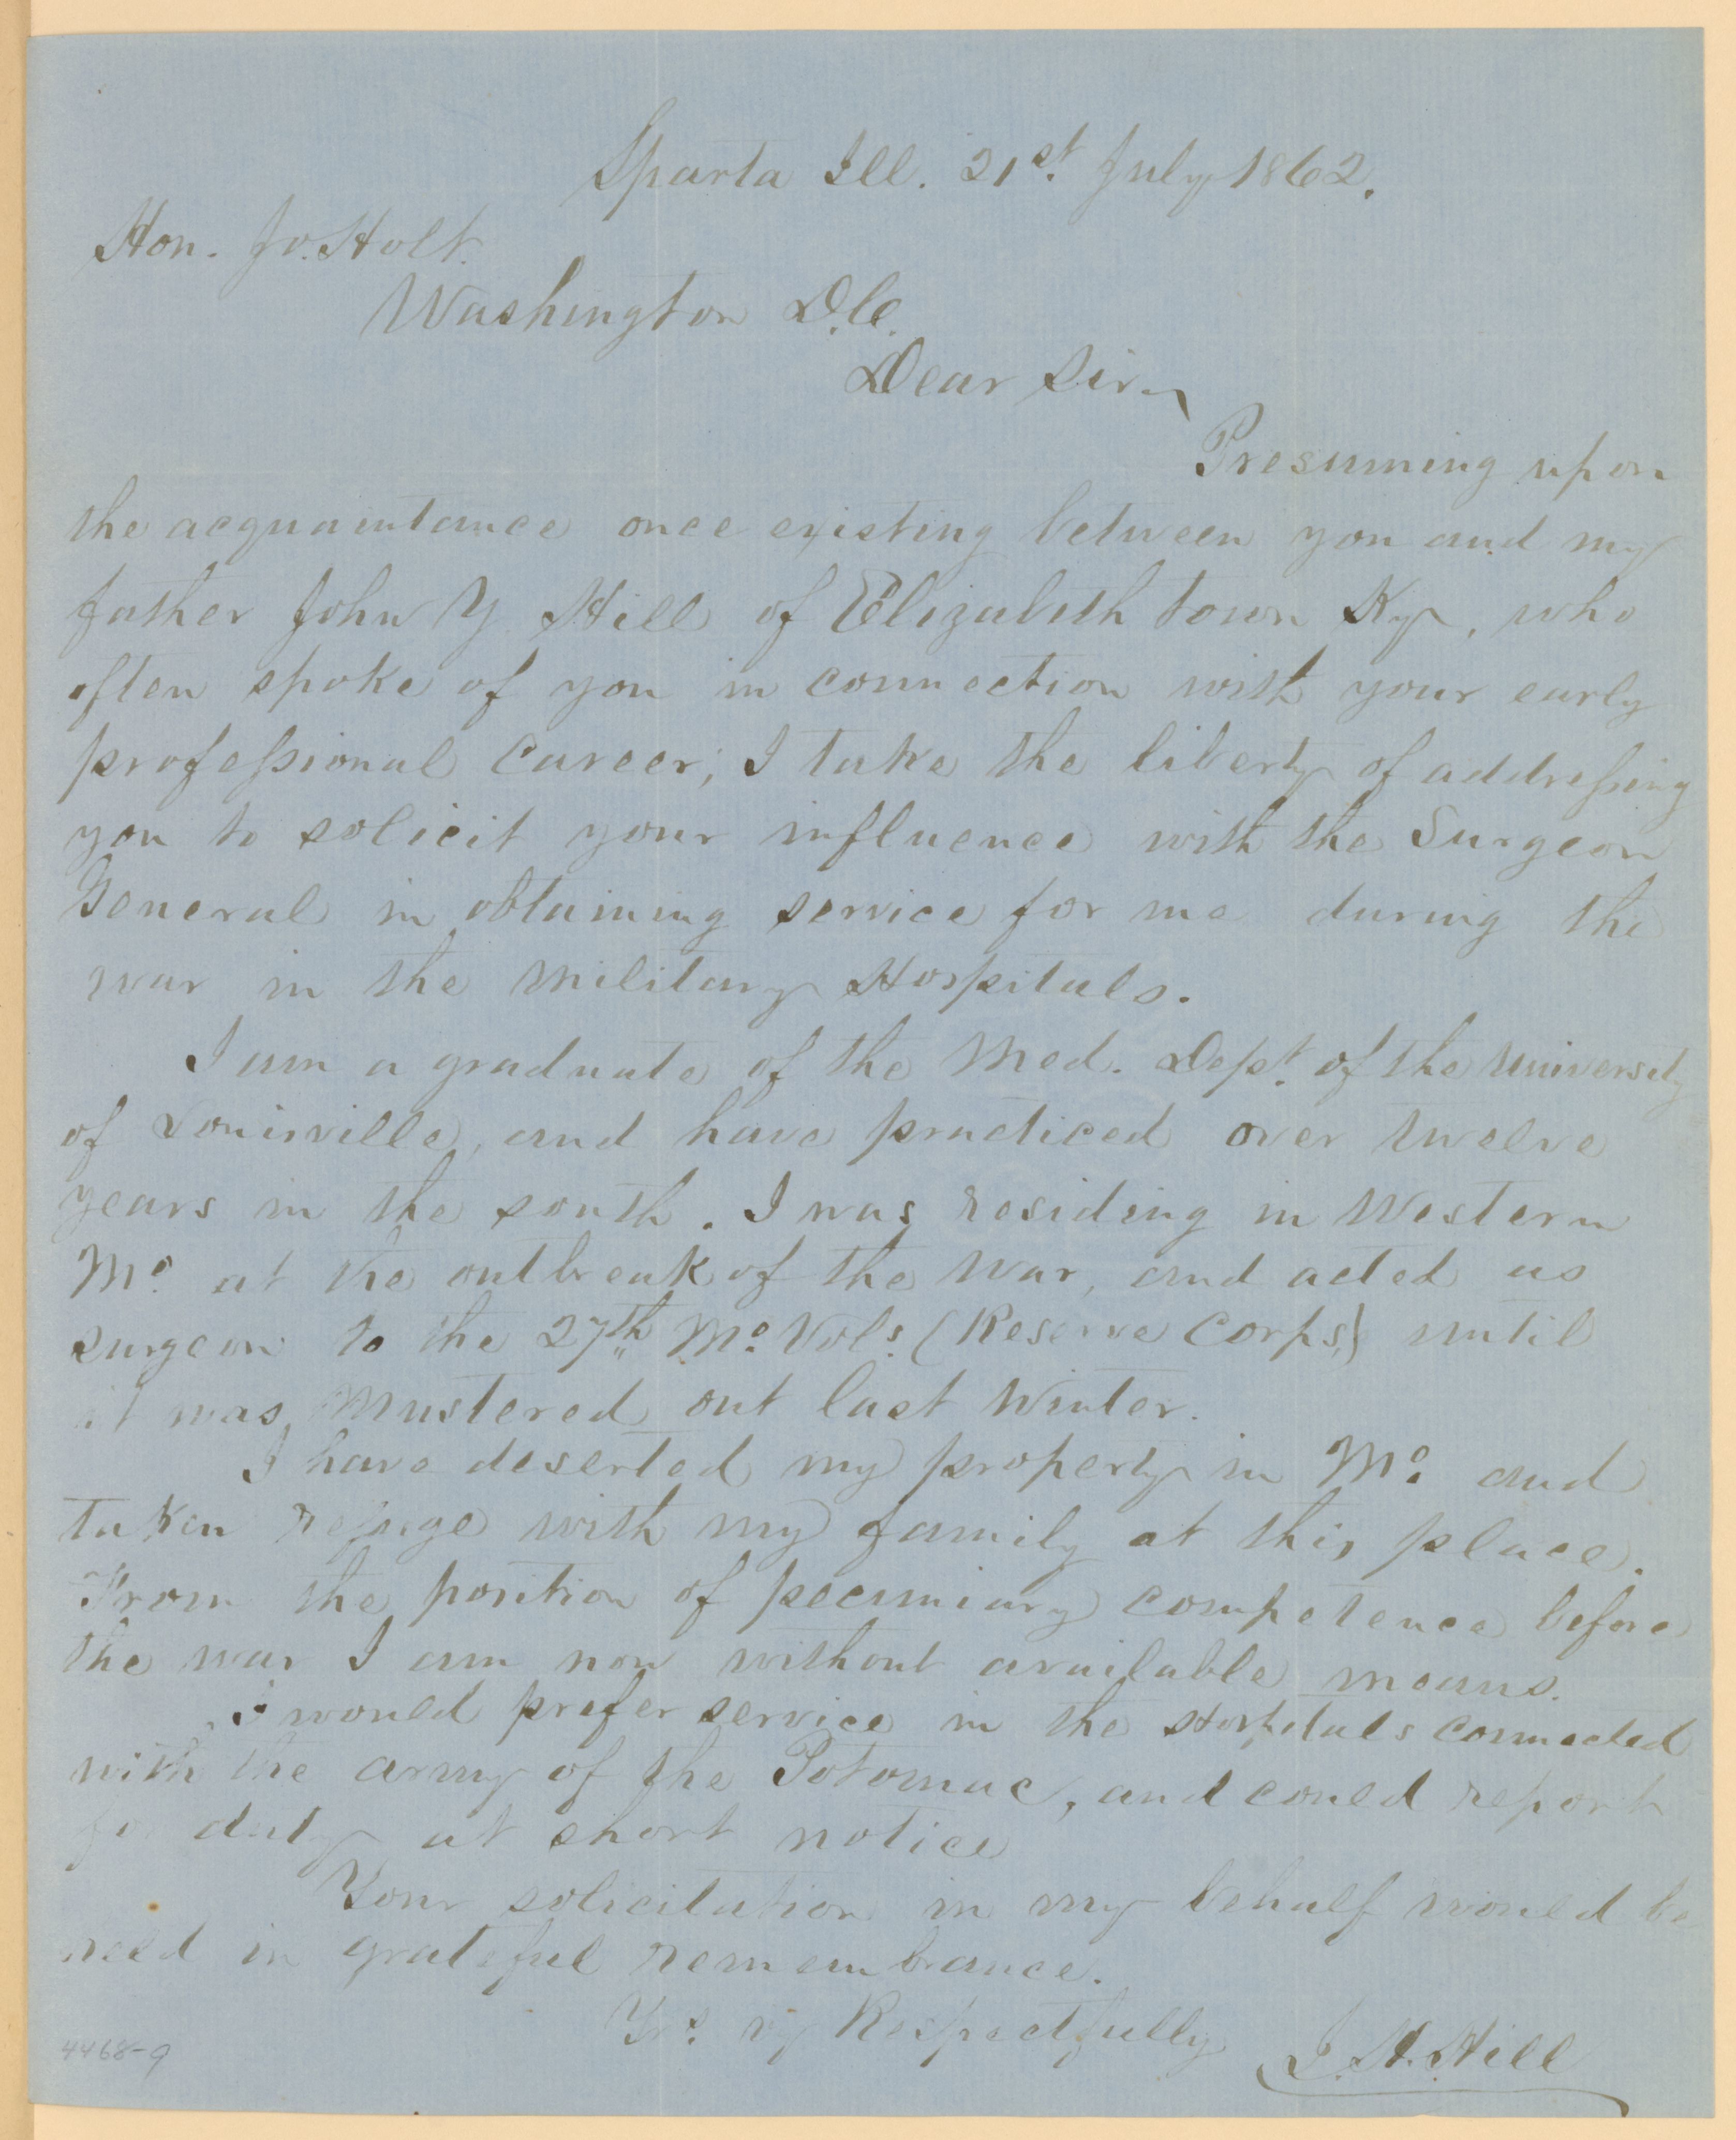 Sparta Ill. 21st. July 1862.
Hon. Jo. Holt.
Washington D.C.
Dear Sir,
Presuming upon
the acquaintance once existing between you and my
father John Y Hill of Elizabeth town Ky, who
often spoke of you in connection with your early
professional career; I take the liberty of addressing
you to solicit your influence with the Surgeon
General in obtaining service for me during the
war in the Military Hospitals.
I am a graduate of the Med. Dept. of the University
of Louisville, and have practiced over twelve
years in the south. I was residing in Western
Mo. at the outbreak of the war, and acted as
surgeon to the 27th Mo. Vols. (Reserve Corps,) until
it was mustered out last winter.
I have deserted my property in Mo. and
taken refuge with my family at this place.
From the position of pecuniary competence before
the war I am now without available means.
I would prefer service in the Hospitals connected
with the army of the Potomac, and could report
for duty at short notice
Your solicitation in my behalf would be
held in grateful remembrance.
Yrs. vy Respectfully
J. H. Hill
4468-9